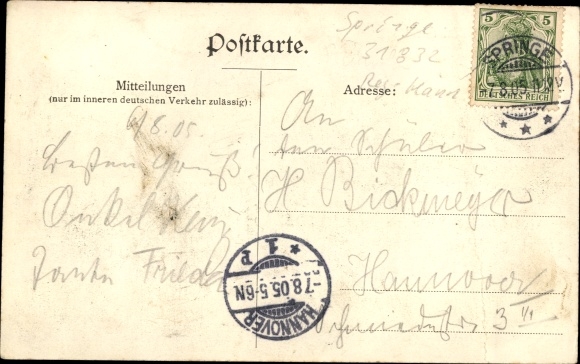 Springe
31832
Postkarte.
5 5
DEUTSCHES REICH
SPRINGE
7.8.05
Mitteilungen
(nur im inneren deutschen Verkehr zulässig):
Adresse:
8.05.
besten Gruß
Onkel
Tante Frieda
An
den Schüler
H Bickmeyer
Hannover
3
HANNOVER
-7.8.05.5-6N
* 1 P